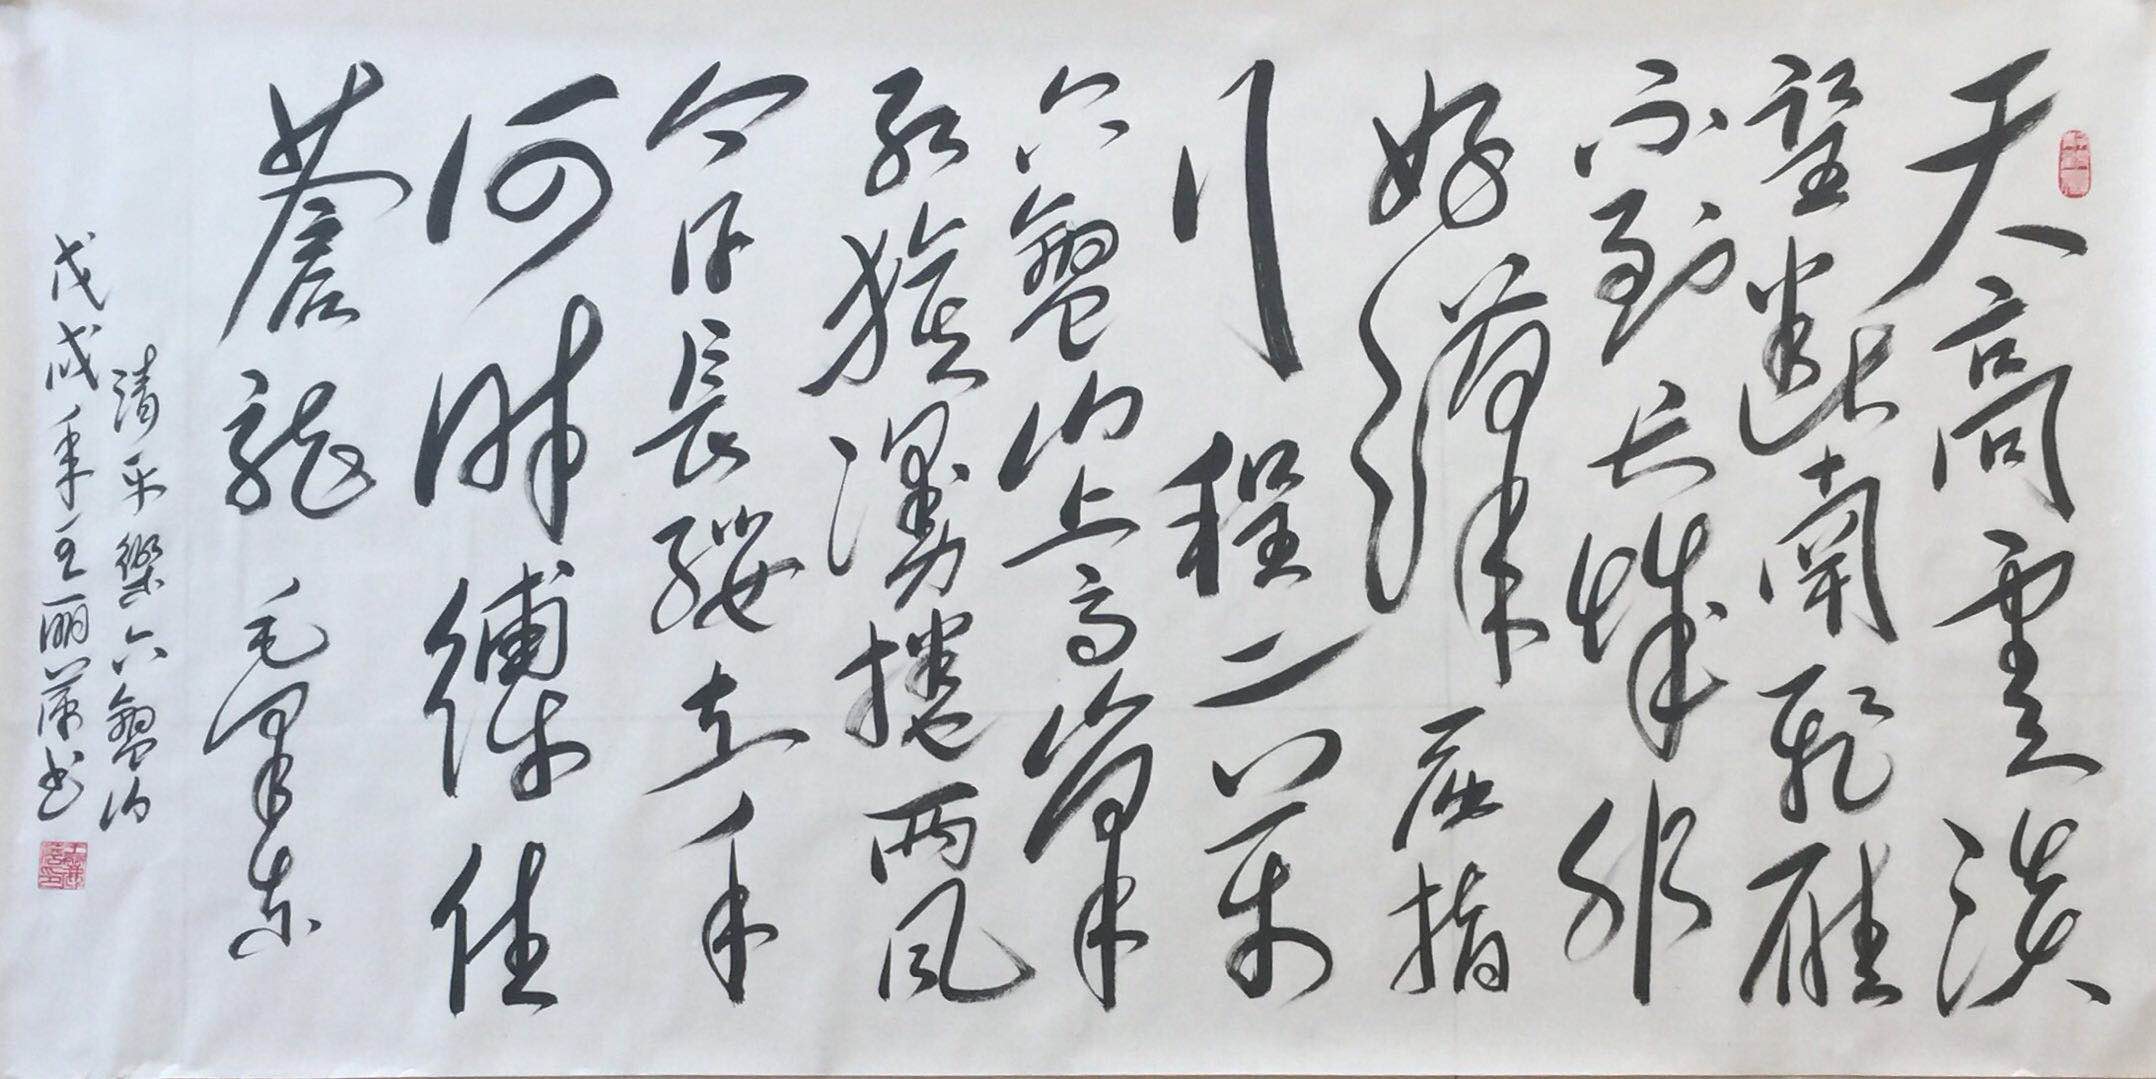 天高雲淡
望斷南飛雁
不到长城非
好漢屈指
行程二萬
六盤山上高峰
紅旗漫捲西風
今日長纓在手
何時縛住
蒼龍毛澤东
清平樂六盤山
戊戌年王丽萍书